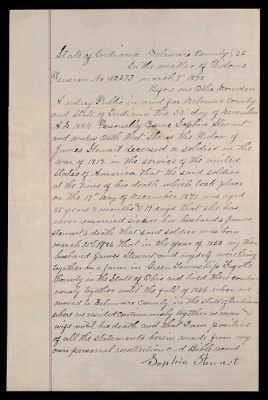 State of Indiana Delaware County } SS
In the matter of Widow's
Pension No. March 9" 1878.
Before me Ollie Bowden
Notary Public in and for Delaware County
and State of Indiana this 30" day of December
A.D. 1884 Personally Came Sophia Stewart
and makes oath that she is the Widow of
James Stewart deceased a soldier in the
war of 1812. in the service of the united
States of America that the said soldier
at the time of his death which took place
on the 19" day of December 1871 was aged
85 years 8 months & 19 days that she has
never remarried since her husbands James
Stewart's death that said soldier was born
march 31st 1786 that in the year of 1853 my then
husband James Stewart and myself were living
together on a farm in Green Township
County in the State of Ohio and lived there contin
uously together until the fall of 1856 when we
moved to Delaware County in the state of Indiana
where we resided continuously together as man &
wife until his death and that I am positive
of all the statements herein made from my
own personal recollection and Bible record
Sophia Stewart